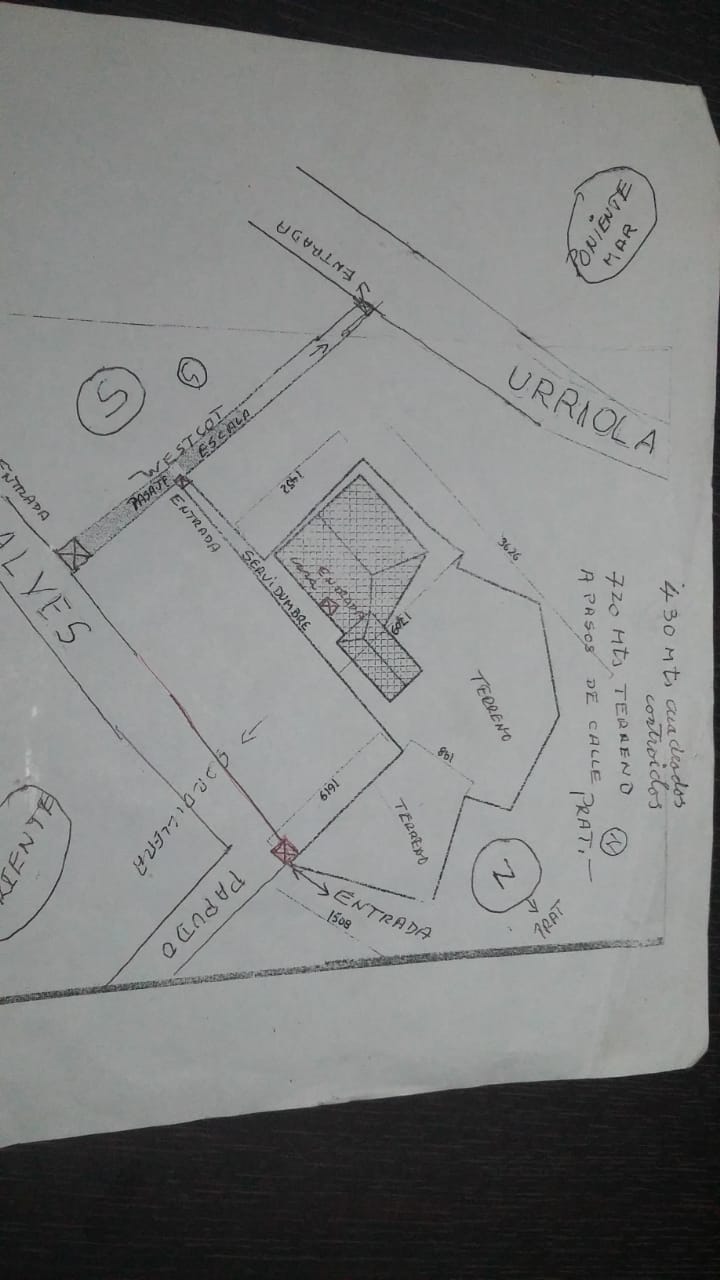 PONIENTE
MAR
ENTRADA
URRIOLA
S
S
WESTCOT
PASAJE ESCALA
ENTRADA
ENTRADA
ALVES
SERVIDUMBRE
1452
3626
ENTRADA
CASA
1209
TERRENO
430 Mts cuadrados
contruidos
720 Mts TERRENO
A PASOS DE CALLE PRAT.-
861
TERRENO
1619
CORDILLERA
N
PRAT
ENTRADA
1508
PAPUDO